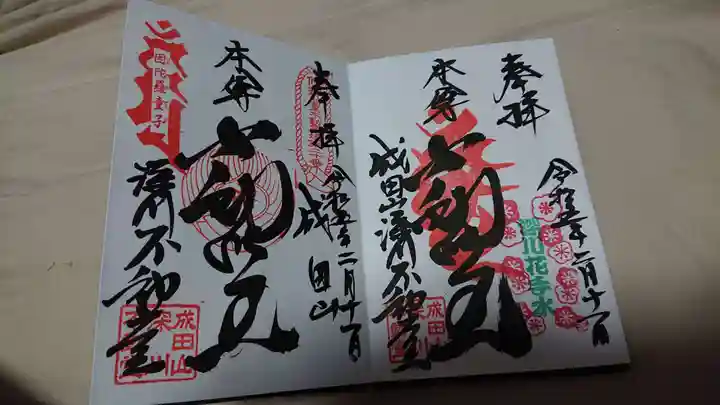 奉拝
令和五年二月十一日
深川花手水
本尊
不動明王
成田山深川不動堂
奉拝
令和五年二月十一日
成田山
本尊
不動明王
深川不動堂
因陀羅童子
成田山
深川